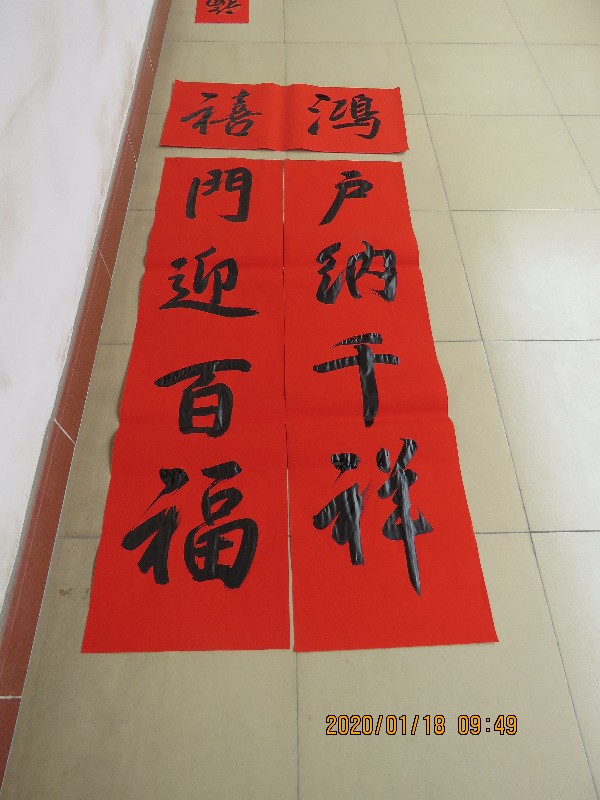 福
鴻禧
户納千祥
門迎百福
2020/01/18 09:49